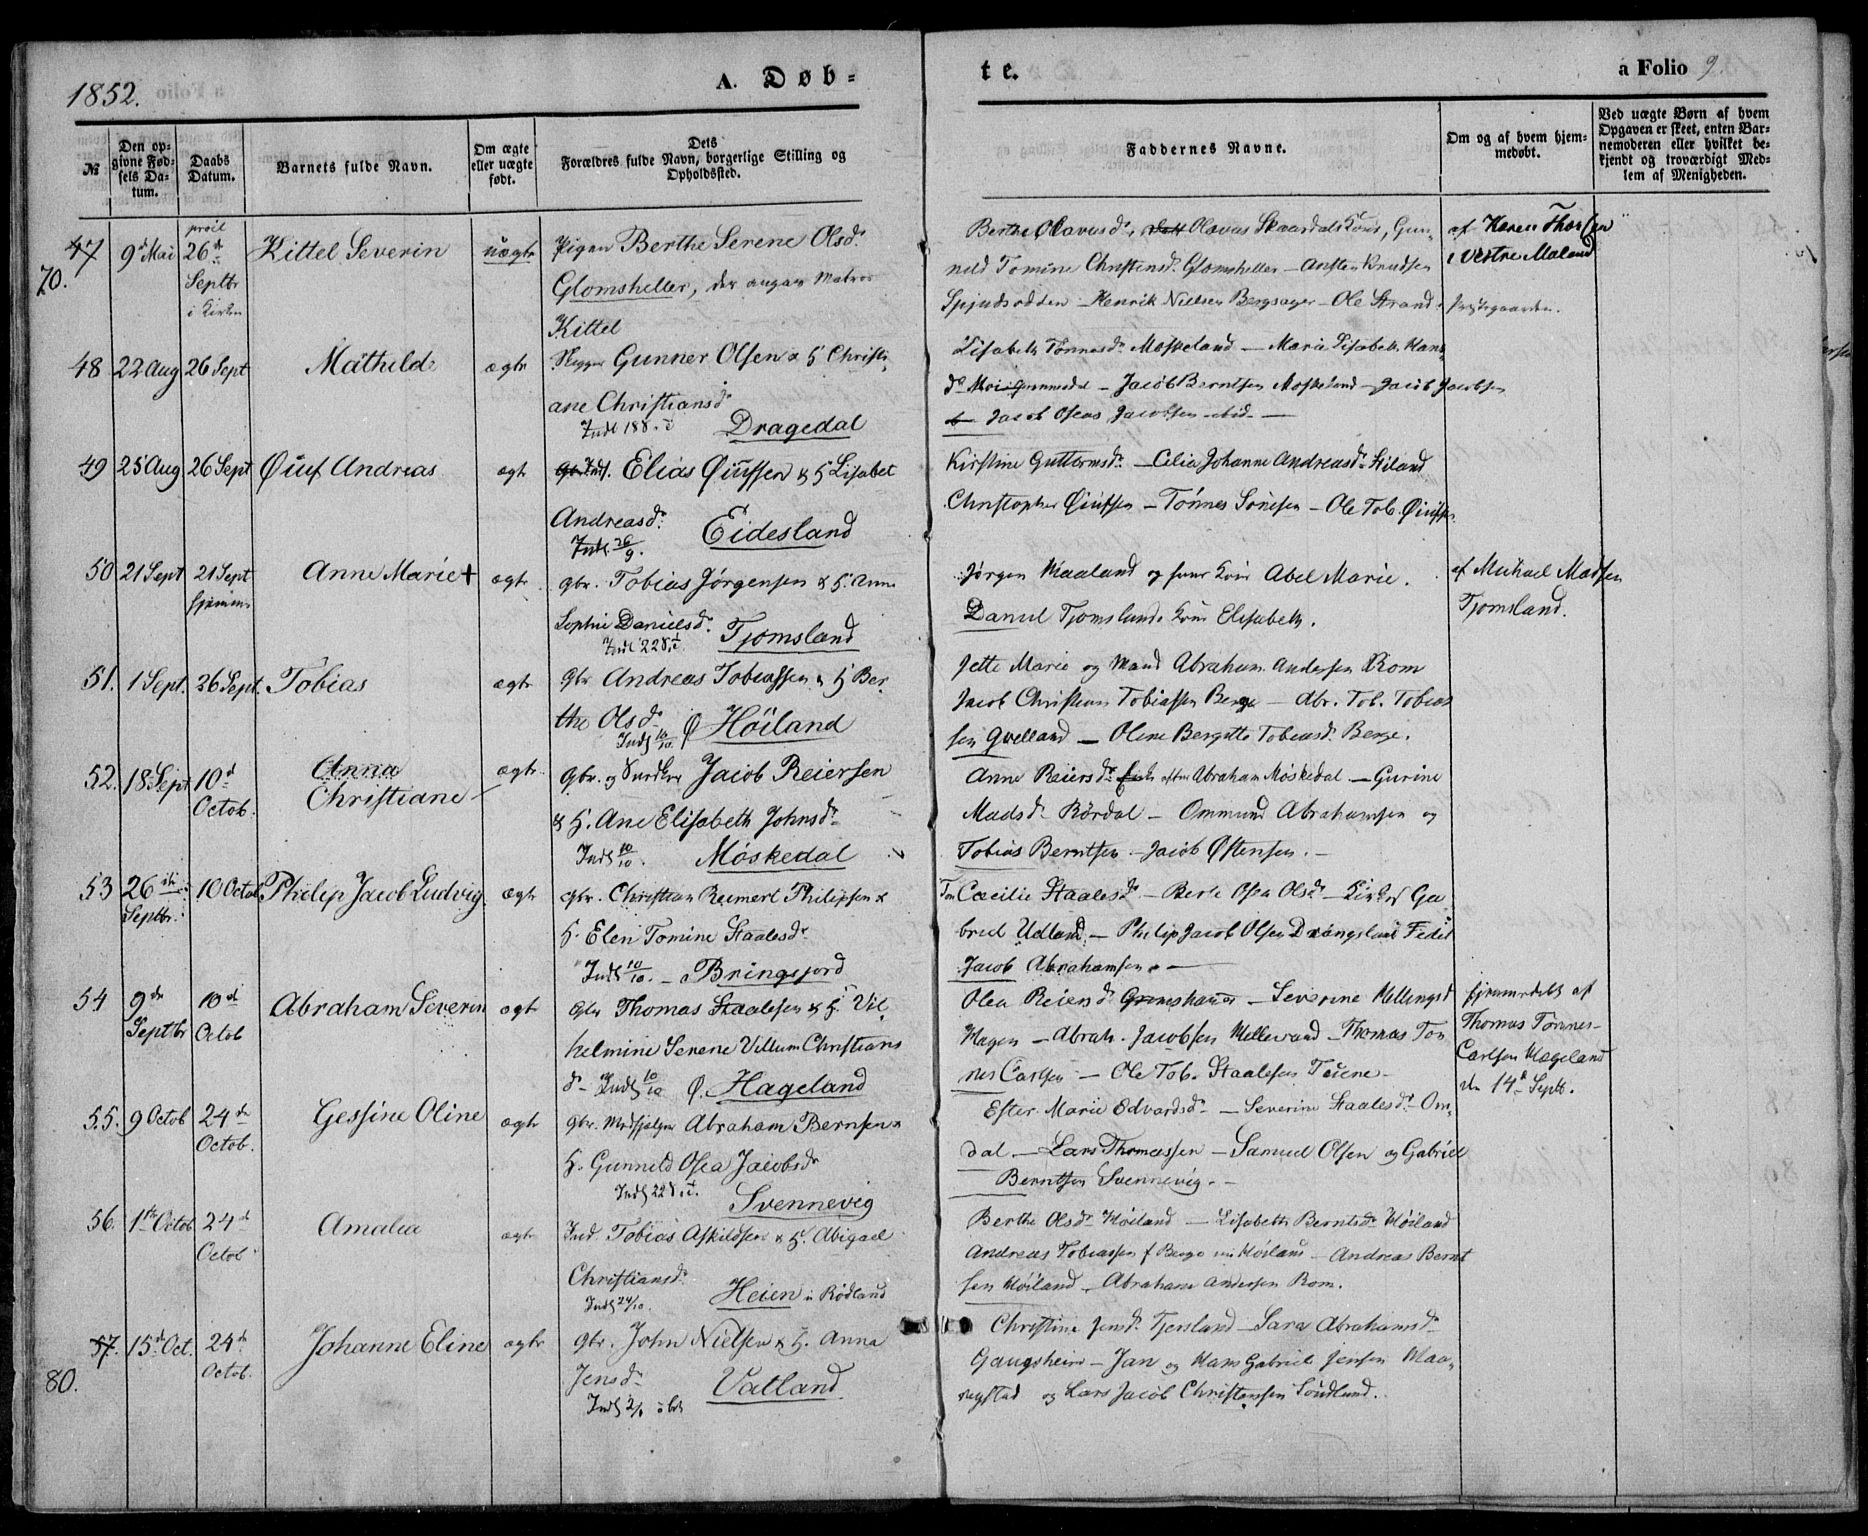 1852.
A. Døb-
te.
a Folio 9.
№
Den opgivne Fødsels Datum.
Daabs Datum.
Barnets fulde Navn.
Om ægte eller uægte født.
Dets Forældres fulde Navn, borgerlige Stilling og Opholdsted.
Faddernes Navne.
Om og af hvem hjemmedøbt.
Ved uægte Børn af hvem Opgaven er skeet, enten Barnemoderen eller hvilket bekjendt og troværdigt Medlem af Menigheden.
47 9d Mai 26d Kittel Severin uægte Pigen Berthe Serene Olsdr
70. Septbr i Kirken Glomsheller, der angav Matros
Kittel
Berthe Olavusdr, Olavus Skaardals Kone, Gun-
nild Tomine Christensdr Glomsheller - Ansten Knudsen
Spjudsodden - Henrik Nielsen Bergsager - Ole Strand
af Karen Thorsen
i Vestre Maland
Præstegaarden.
48 22 Aug 26 Sept Mathilde ægte Gunner Olsen & H Christi-
ane Christiansdr
Dragedal
Lisabeth Tønnesdr Moskeland - Marie Lisabeth Hans
dr - Jacob Berntsen Moskeland - Jacob Jacobsen
Jacob Oseas Jacobsen ibid -
49 25 Aug 26 Sept Øiuf Andreas ægte Elias Øiufssen & H Lisabet
Andreasdr.
Indl 26/9. Eidesland
Kirstine Guttormsdr - Celia Johanne Andreasdr Eiland
Christopher Øiufsen - Tønnes Sørensen - Ole Tob. Øiufsen
50 21 Sept 21 Sept hjemme Anne Marie + ægte gbr. Tobias Jørgensen & H. Anne
Sophie Danielsdr.
Tjomsland
Jørgen Maaland og hans Kone Abel Marie.
Daniel Tjomslands Kone Elisabeth.
af Michael Madsen
Tjomsland.
51. 1 Sept. 26 Sept. Tobias ægte Gbr Andreas Tobiassen & H Ber-
the Olsdr
Indl 10/10 Ø Høiland
Jette Marie og Mand Abraham Andersen Rom
Jacob Christian Tobiassen Berge - Abr. Tob. Tobias
sen Qvelland - Olene Bergitte Tobiasdr Berge.
52. 18 Sept 10d Octob. Anna Christiane ægte gbr. og Jacob Reiersen
& H. Ane Elisabeth Johnsdr
Indl 10/10. Møskedal
Anne Reiersdr Enke efter Abraham Møskedal - Gurine
Madsdr Rørdal - Ommund Abrahamsen og
Tobias Berntsen - Jacob Østensen. -
53 26de Septbr. 10 Octob Philip Jacob Ludvig. ægte gbr. Christian Reinert Philipsen &
H. Elen Tomine Staalesdr
Indl 10/10. - Bringsjord
Cæcilie Staalesdr - Berte Osea Olsdr - Ga-
briel Udland, - Philip Jacob Olsen Drangsland Fedet
Jacob Abrahamsen. -
54 9de Septbr 10d Octob Abraham Severin ægte Gbr Thomas Staalesen & H. Vil-
helmine Serene Villum Christians
dr - Indl 10/10 Ø. Hageland
Olea Reiersdr - Severine Hellingsd
Hagen - Abrah. Jacobsen Hellevand - Thomas Tøn
nes Carlsen - Ole Tob. Staalesen
hjemmedøbt af
Thomas Tønnes-
Carlsen Hægeland
den 14d Septb.
55. 9 Octob 24de Octob. Gessine Oline ægte Gbr. Medhjelper Abraham Bernsen &
H. Gunneld Osea Jacobsdr
Svennevig
Ester Marie Edvardsdr - Severine Staalesdr - Om-
dal - Lars Thomassen - Samuel Olsen og Gabriel
Berntsen Svennevig. -
56. 1ste Octob 24d Octob. Amalia ægte Ind. Tobias Askildsen & H. Abigael
Christiansdr.
Indl 24/10. Heien u Rødland
Berthe Olsdr Høiland - Lisabeth Berntsdr Høiland
Andreas Tobiassen f Berge nu Høiland - Andreas Bernt
sen Høiland - Abraham Andersen Rom.
57. 15d Oct. 24de Octob. Johanne Eline ægte gbr. John Nielsen & H. Anna
80. Jensdr
Vatland
Christine Jensdr Tjersland - Sara Abrahamsdr
Gaugsheim - Jan og Hans Gabriel Jensen Haa-
rægstad og Lars Jacob Christensen Sørdlund.